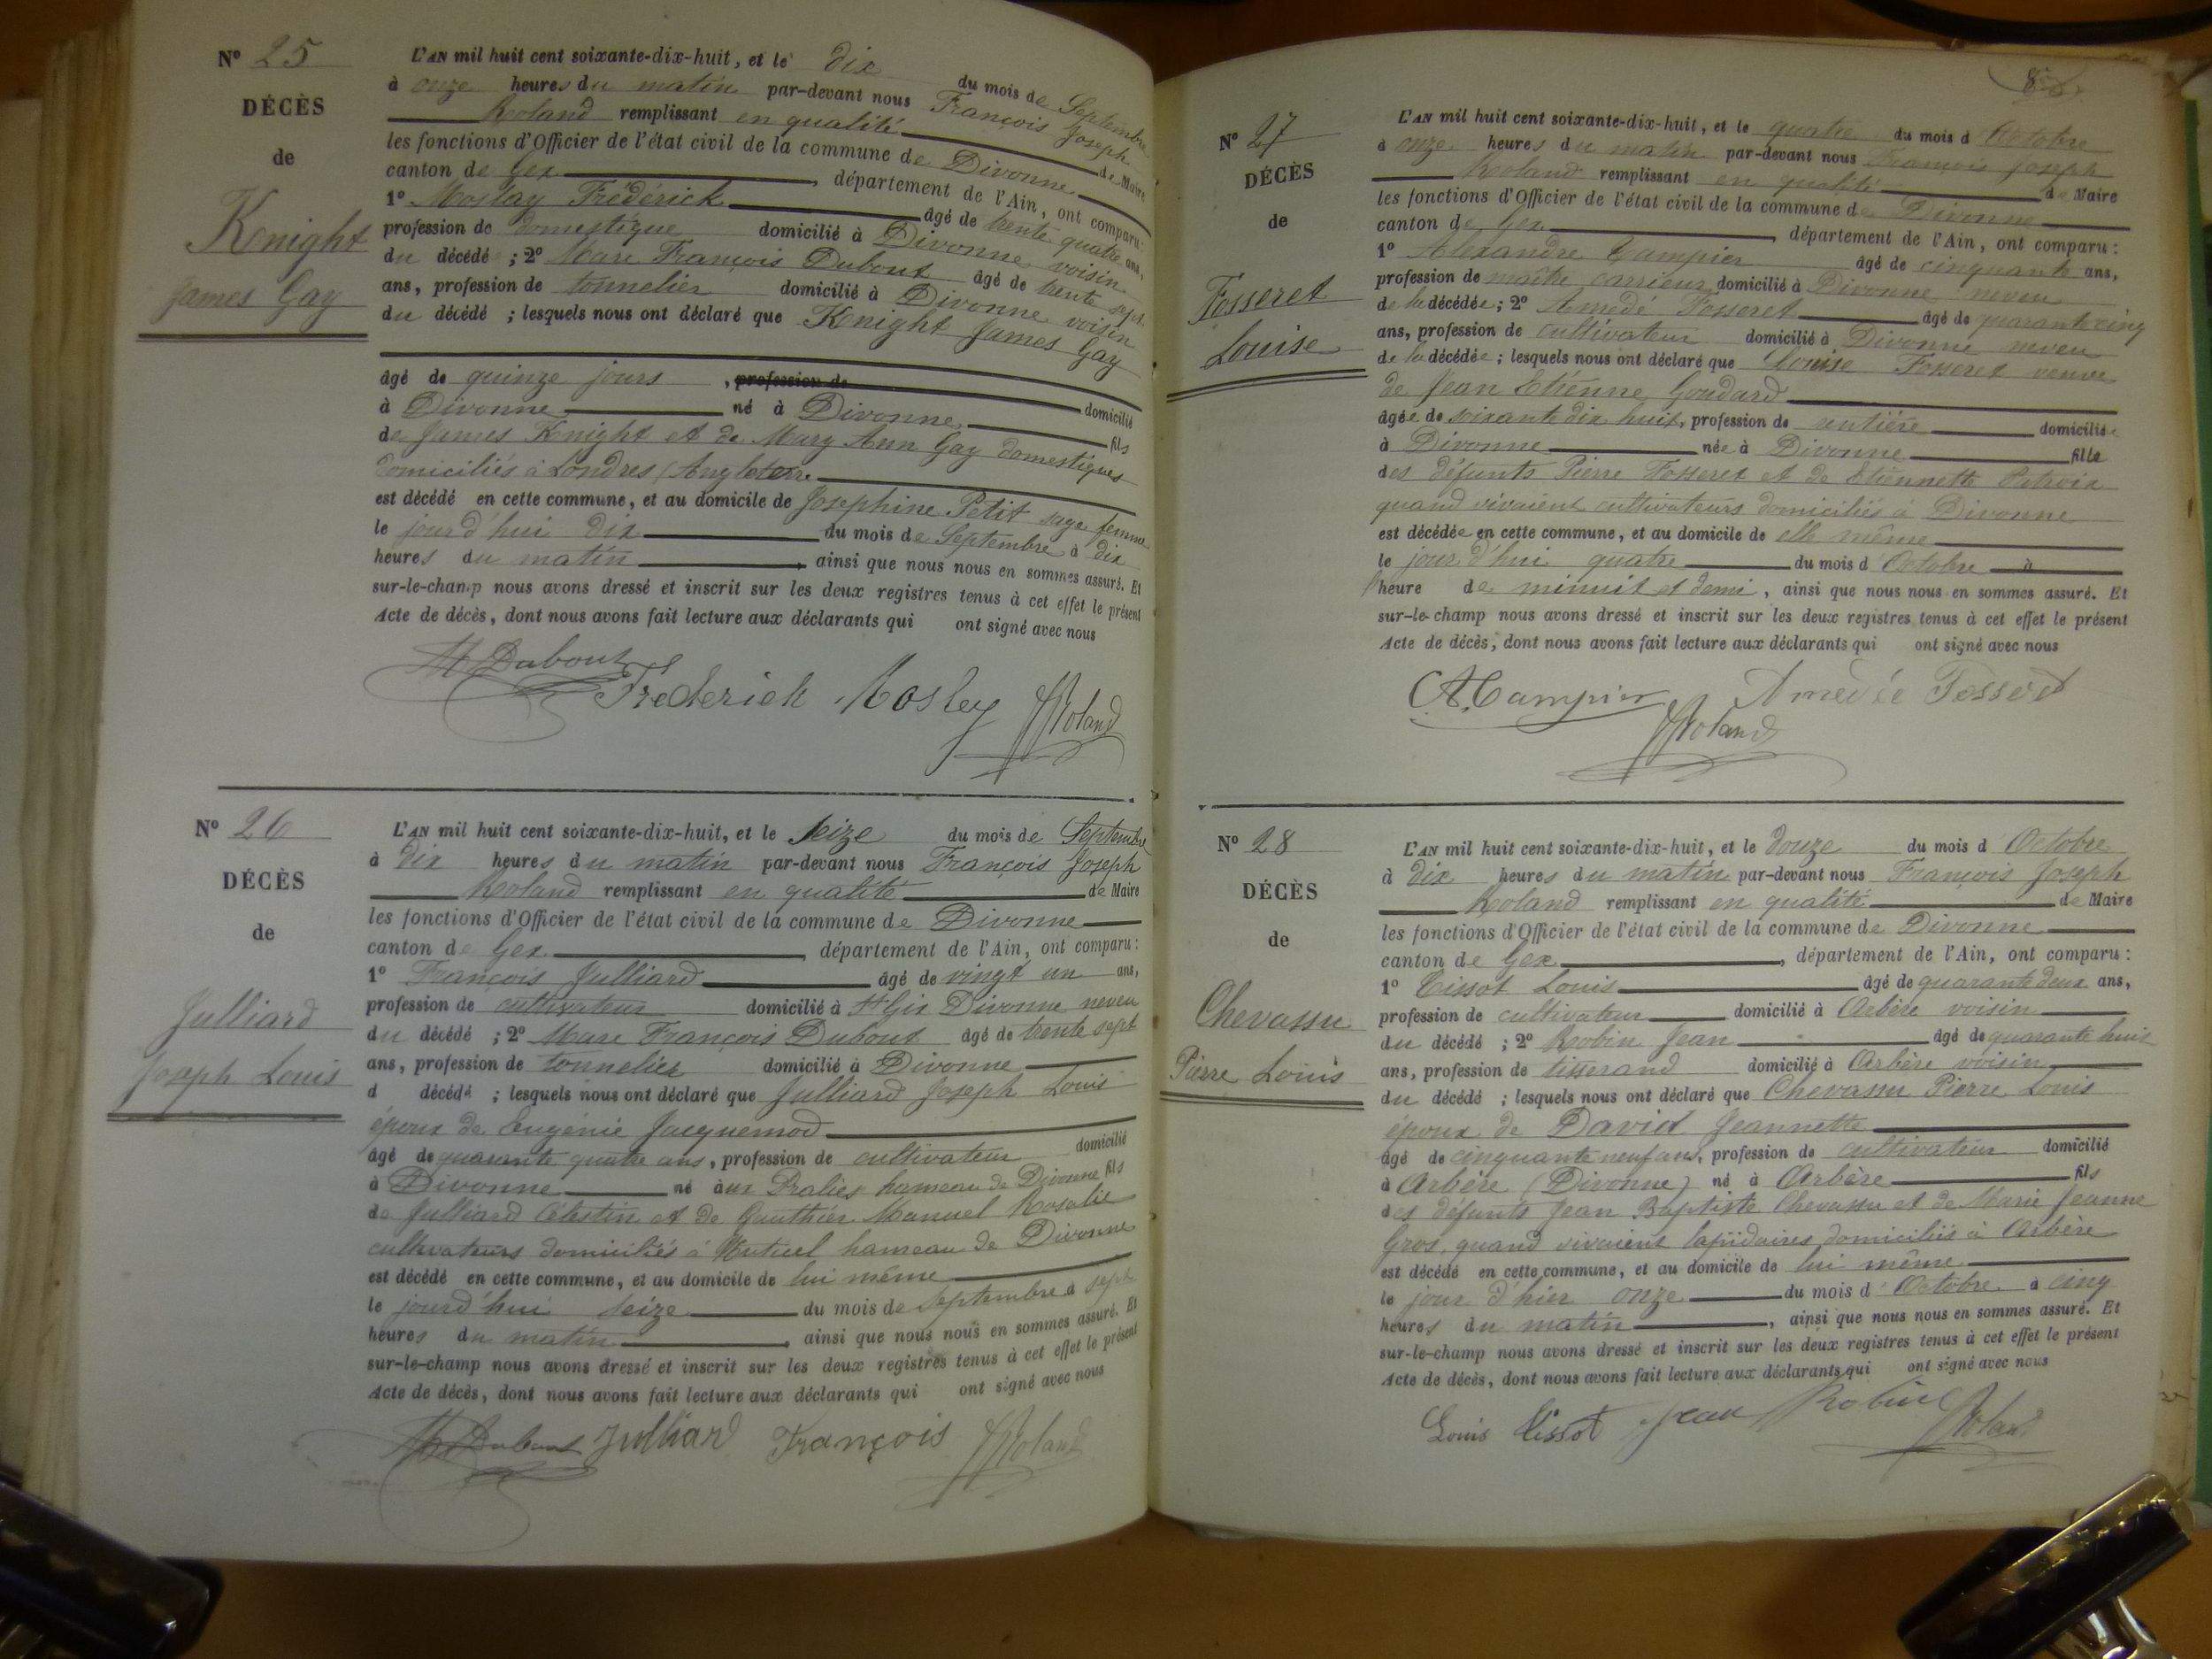 N° 25
DÉCÈS
de
Knight
James Gay
L'AN mil huit cent soixante-dix-huit, et le dix du mois de Septembre
à onze heures du matin par-devant nous François Joseph
Roland remplissant en qualité de Maire
les fonctions d'Officier de l'état civil de la commune de Divonne
canton de Gex, département de l'Ain, ont comparu :
1° Moslay Frédérick âgé de trente quatre ans,
profession de domestique domicilié à Divonne voisin
du décédé ; 2° Marc François Dubout âgé de trente sept
ans, profession de tonnelier domicilié à Divonne voisin
du décédé ; lesquels nous ont déclaré que Knight James Gay
âgé de quinze jours, profession de domicilié
à Divonne né à Divonne fils
de James Knight et de Mary Ann Gay domestiques
domiciliés à Londres (Angleterre
est décédé en cette commune, et au domicile de Josephine Petit sage femme
le jourd'hui dix du mois de Septembre à dix
heures du matin, ainsi que nous nous en sommes assuré. Et
sur-le-champ nous avons dressé et inscrit sur les deux registres tenus à cet effet le présent
Acte de décès, dont nous avons fait lecture aux déclarants qui ont signé avec nous
M Dubout Frederick Mosley JJRoland
N° 26
DÉCÈS
de
Julliard
Joseph Louis
L'AN mil huit cent soixante-dix-huit, et le seize du mois de Septembre
à dix heures du matin par-devant nous François Joseph
Roland remplissant en qualité de Maire
les fonctions d'Officier de l'état civil de la commune de Divonne
canton de Gex, département de l'Ain, ont comparu :
1° François Julliard âgé de vingt un ans,
profession de cultivateur domicilié à St Gix Divonne neveu
du décédé ; 2° Marc François Dubout âgé de trente sept
ans, profession de tonnelier domicilié à Divonne
d décédé ; lesquels nous ont déclaré que Julliard Joseph Louis
époux de Eugénie Jacquemod
âgé de quarante quatre ans, profession de cultivateur domicilié
à Divonne né aux hameau de Divonne fils
de Julliard Célestin et de Gauthier Manuel Rosalie
cultivateurs domiciliés à hameau de Divonne
est décédé en cette commune, et au domicile de lui même
le jourd'hui seize du mois de Septembre à sept
heures du matin, ainsi que nous nous en sommes assuré. Et
sur-le-champ nous avons dressé et inscrit sur les deux registres tenus à cet effet le présent
Acte de décès, dont nous avons fait lecture aux déclarants qui ont signé avec nous
M Dubout Julliard François JJRoland
N° 27
DÉCÈS
de
Fosseret
Louise
L'AN mil huit cent soixante-dix-huit, et le quatre du mois d'Octobre
à onze heures du matin par-devant nous François Joseph
Roland remplissant en qualité de Maire
les fonctions d'Officier de l'état civil de la commune de Divonne
canton de Gex, département de l'Ain, ont comparu :
1° Alexandre Campier âgé de cinquante ans,
profession de maître carrieur domicilié à Divonne neveu
de la décédée ; 2° Amédé Fosseret âgé de quarante cinq
ans, profession de cultivateur domicilié à Divonne neveu
de la décédée ; lesquels nous ont déclaré que Louise Fosseret veuve
de Jean Etienne Goudard
âgée de soixante dix huit, profession de rentière domiciliée
à Divonne née à Divonne fille
des défunts Pierre Fosseret et de Etiennette
quand vivaient cultivateurs domiciliés à Divonne
est décédée en cette commune, et au domicile de elle même
le jour d'hui quatre du mois d'Octobre à
l'heure de minuit et demi, ainsi que nous nous en sommes assuré. Et
sur-le-champ nous avons dressé et inscrit sur les deux registres tenus à cet effet le présent
Acte de décès, dont nous avons fait lecture aux déclarants qui ont signé avec nous
A. Campier Amedée Fosseret
JJRoland
N° 28
DÉCÈS
de
Chevassu
Pierre Louis
L'AN mil huit cent soixante-dix-huit, et le douze du mois d'Octobre
à dix heures du matin par-devant nous François Joseph
Roland remplissant en qualité de Maire
les fonctions d'Officier de l'état civil de la commune de Divonne
canton de Gex, département de l'Ain, ont comparu :
1° Tissot Louis âgé de quarante deux ans,
profession de cultivateur domicilié à Arbère voisin
du décédé ; 2° Robin Jean âgé de quarante huit
ans, profession de tisserand domicilié à Arbère voisin
du décédé ; lesquels nous ont déclaré que Chevassu Pierre Louis
époux de David Jeannette
âgé de cinquante neuf ans, profession de cultivateur domicilié
à Arbère (Divonne) né à Arbère fils
des défunts Jean Baptiste Chevassu et de Marie Jeanne
Gros, quand vivaient lapidaires domiciliés à Arbère
est décédé en cette commune, et au domicile de lui même
le jour d'hier onze du mois d'Octobre à cinq
heures du matin, ainsi que nous nous en sommes assuré. Et
sur-le-champ nous avons dressé et inscrit sur les deux registres tenus à cet effet le présent
Acte de décès, dont nous avons fait lecture aux déclarants qui ont signé avec nous
Louis Tissot Jean Robin JJRoland